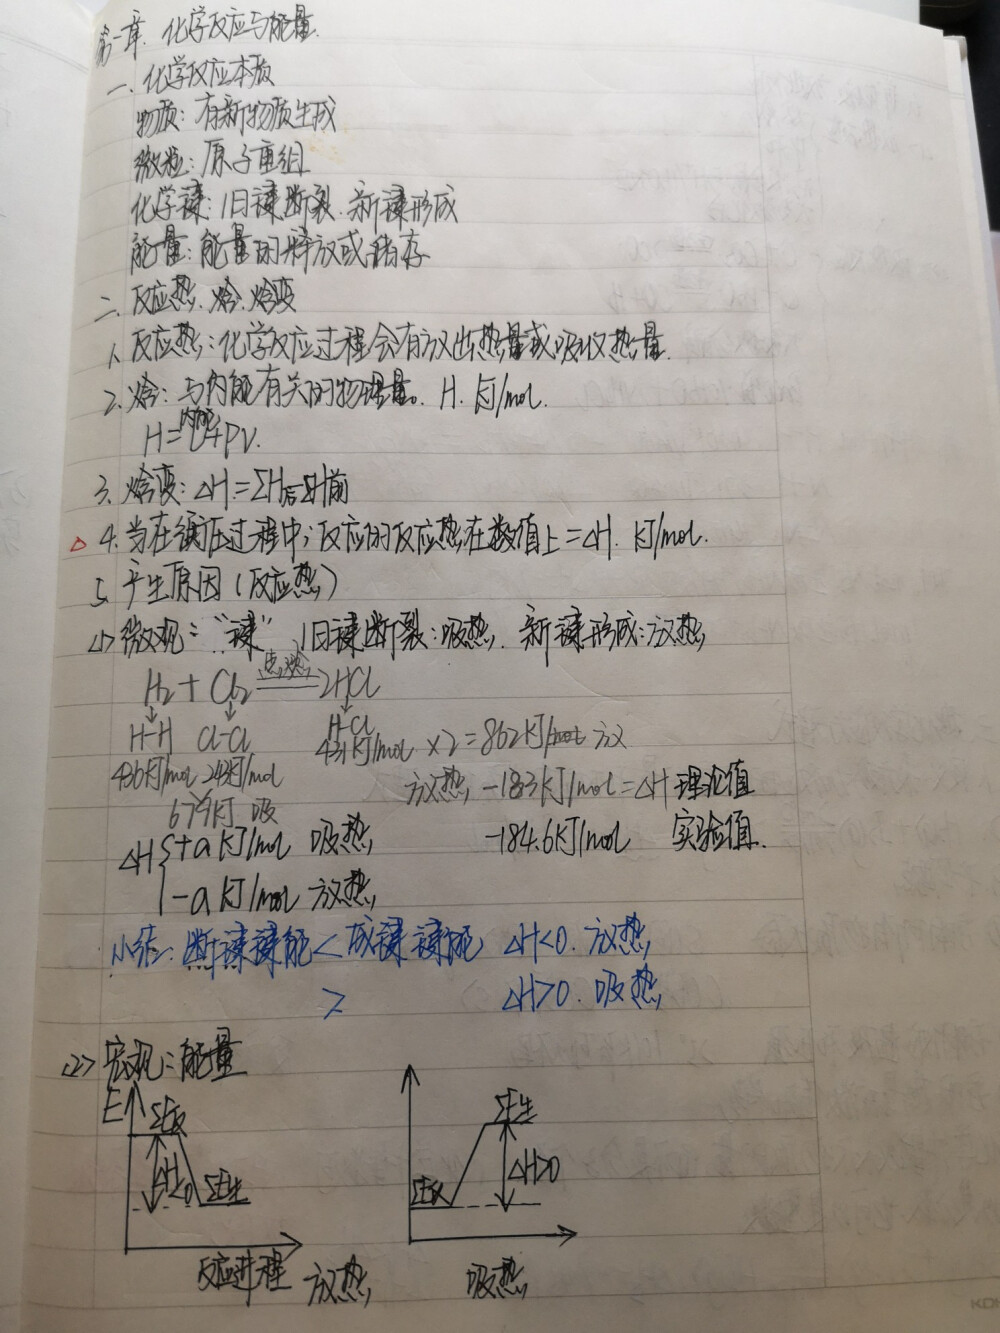 第一章. 化学反应与能量.
一. 化学反应本质
物质: 有新物质生成
微粒: 原子重组
化学键: 旧键断裂. 新键形成
能量: 能量的释放或储存
二. 反应热. 焓. 焓变
1. 反应热: 化学反应过程会有放出热量或吸收热量.
2. 焓: 与内能有关的物理量. H. kJ/mol.
内能
H=U+PV.
3. 焓变: △H=ΣH后-ΣH前
△ 4. 当在衡压过程中; 反应的反应热在数值上=△H. kJ/mol.
5. 产生原因(反应热)
<1> 微观: "键" 旧键断裂: 吸热, 新键形成: 放热
点燃
H₂+Cl₂══2HCl
↓ ↓ ↓
H-H Cl-Cl H-Cl
431kJ/mol ×2=862kJ/mol 放
436kJ/mol 243kJ/mol 放热 -183kJ/mol=△H 理论值
679kJ 吸
△H{+a kJ/mol 吸热 -184.6kJ/mol 实验值.
-a kJ/mol 放热
小结: 断键键能<成键键能 △H<0. 放热
> △H>0. 吸热
<2> 宏观: 能量
E ΣE反 ΣE生
△H<0 ΣE生 ΣE反 △H>0
反应进程 放热 吸热